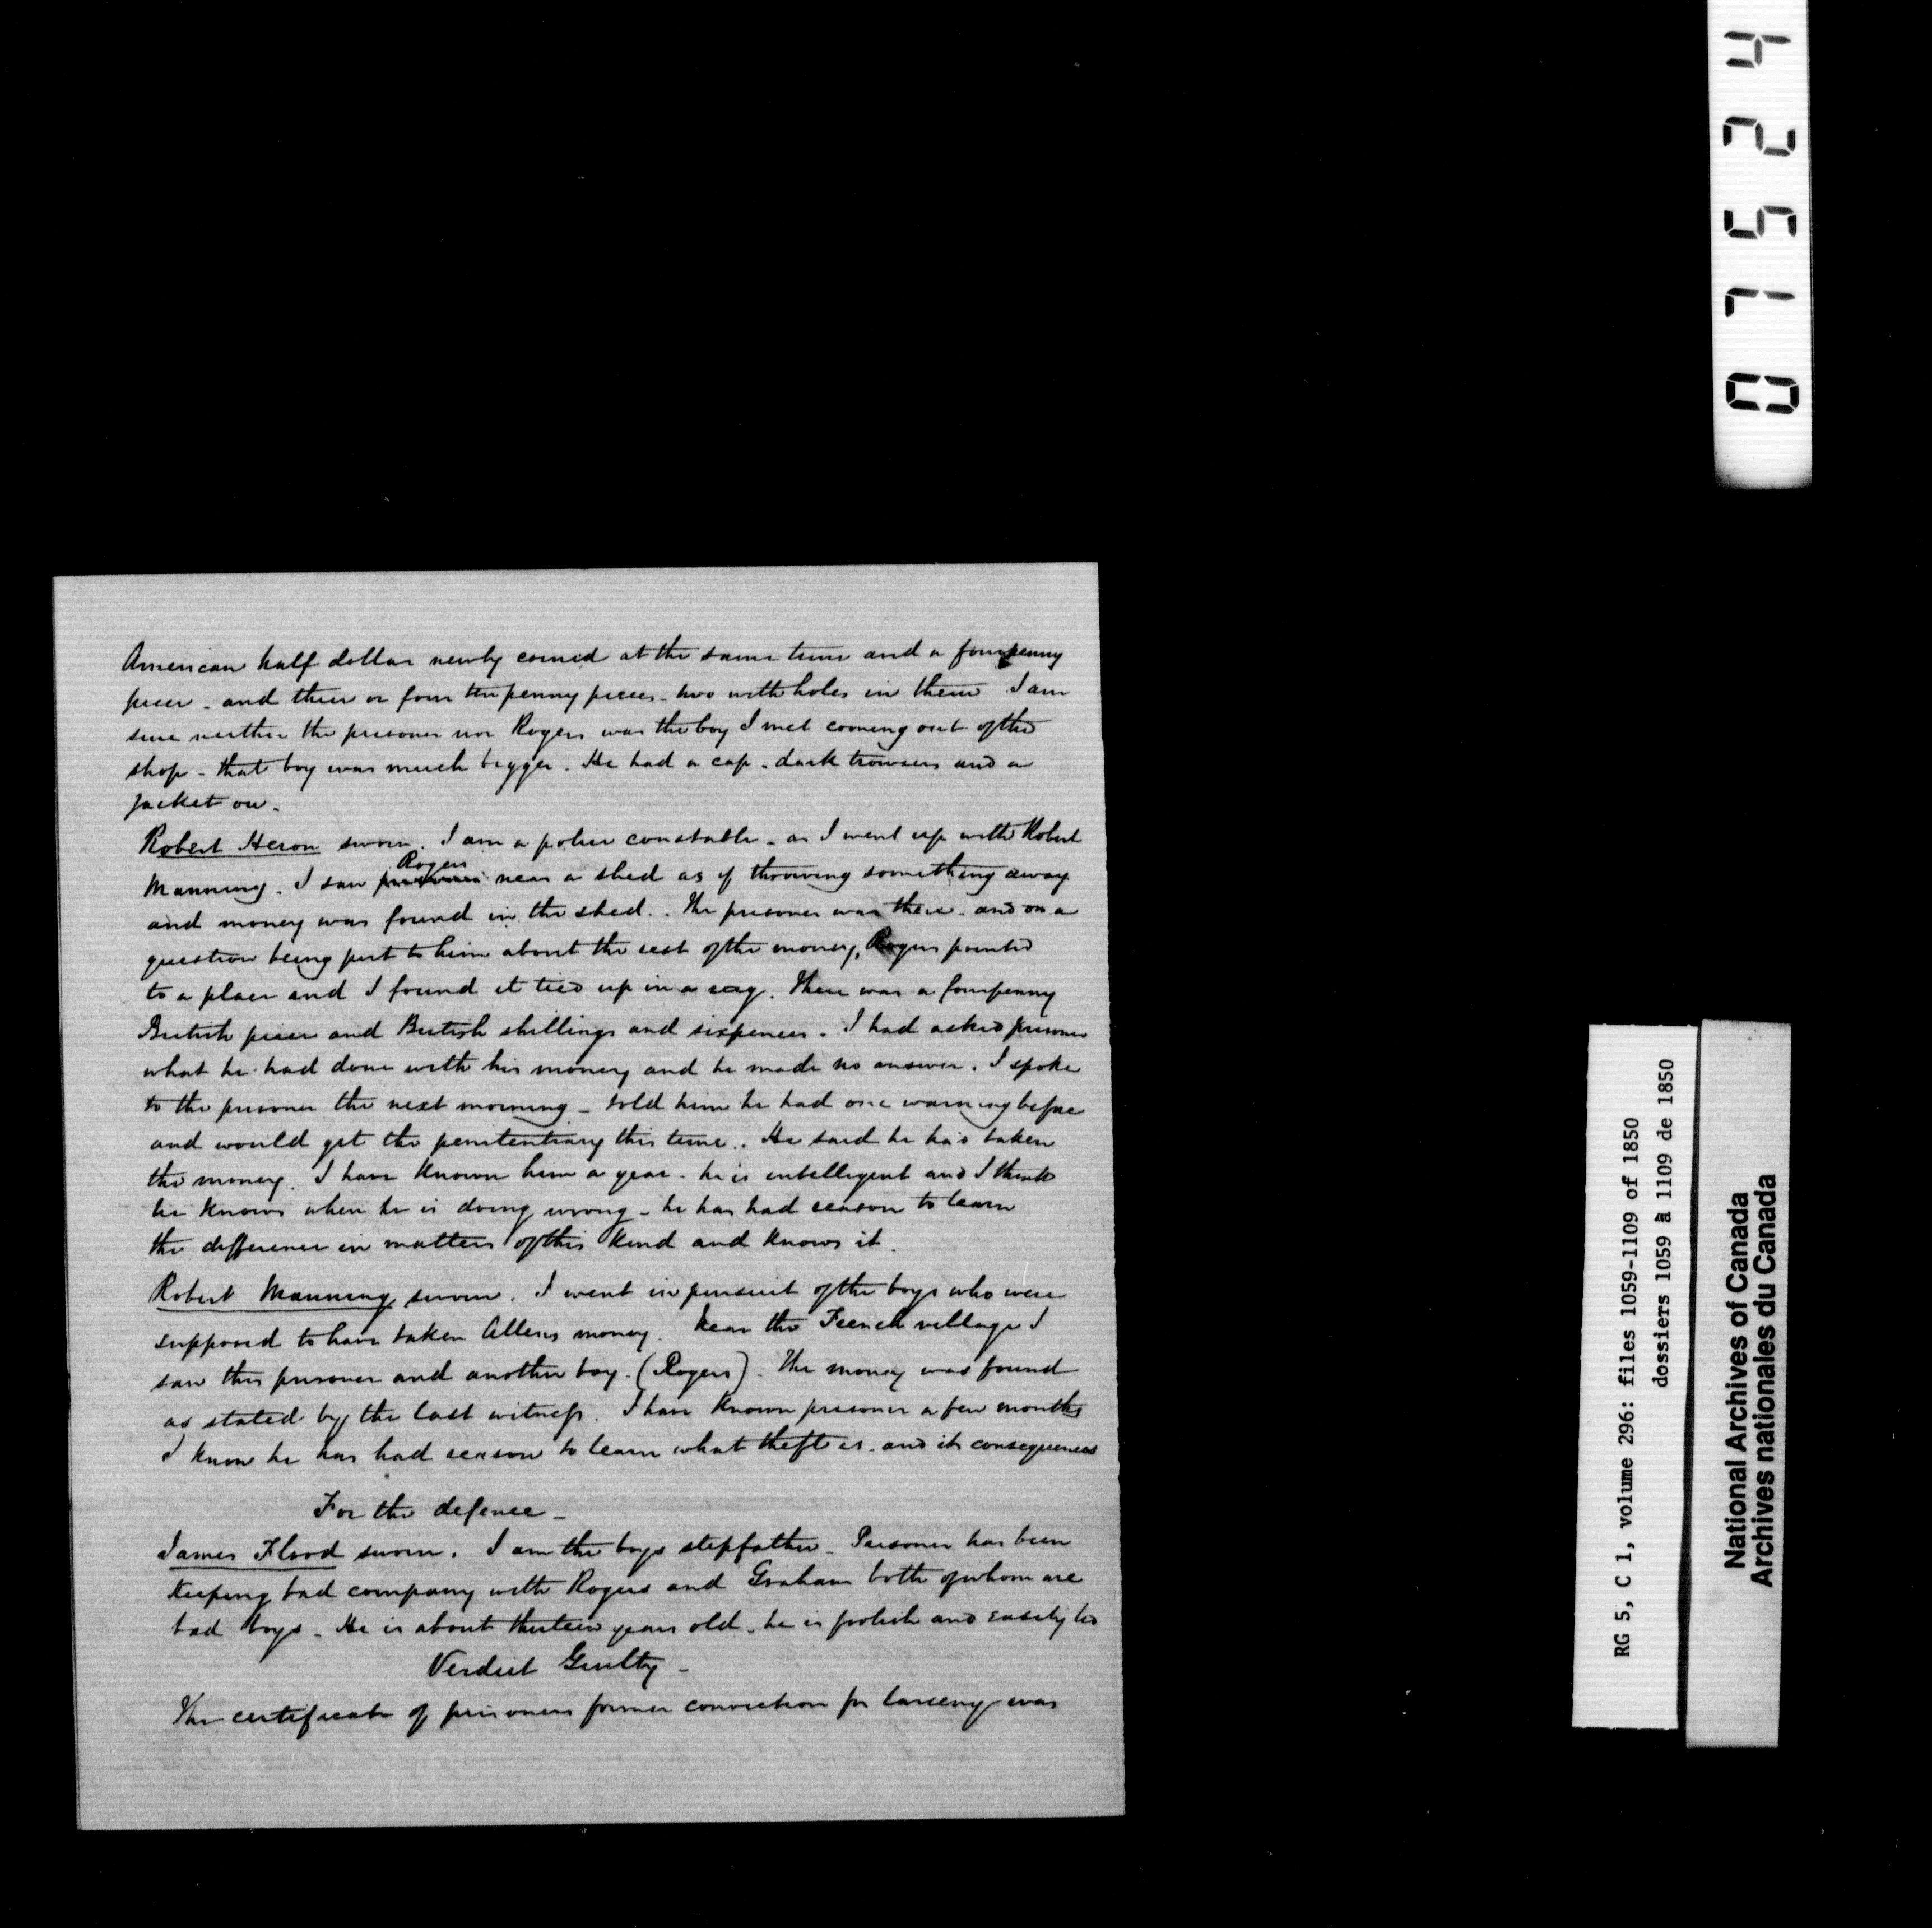 American half dollar newly coined at the same time and a fourpenny
piece - and three or four ten penny pieces - two with holes in them I am
sure neither the prisoner nor Rogers was the boy I met coming out of the
shop - that boy was much bigger. He had a cap - dark trowsers and a
jacket on.
Robert Heron sworn. I am a police constable - as I went up with Robert
Rogers
Manning. I saw prisoner near a shed as if throwing something away
and money was found in the shed. The prisoner was there - and on a
question being put to him about the rest of the money, Rogers pointed
to a place and I found it tied up in a rag. There was a fourpenny
British piece and British shillings and sixpences. I had asked prisoner
what he had done with his money and he made no answer. I spoke
to the prisoner the next morning - told him he had one warning before
and would get the penitentiary this time. He said he had taken
the money. I have known him a year - he is intelligent and I think
he knows when he is doing wrong - he has had reason to learn
the difference in matters of this kind and knows it.
Robert Manning sworn. I went in pursuit of the boys who were
supposed to have taken Allens money. Near the French village I
saw this prisoner and another boy. (Rogers). The money was found
as stated by the last witness. I have known prisoner a few months
I know he has had reason to learn what theft is - and its consequences
For the defence -
James Flood sworn. I am the boys stepfather - Prisoner has been
keeping bad company with Rogers and Graham both of whom are
bad boys - He is about thirteen years old - he is foolish and easily led
Verdict Guilty -
The certificate of prisoners former conviction for larceny was
07524
RG 5, C 1, volume 296: files 1059-1109 of 1850
dossiers 1059 à 1109 de 1850
National Archives of Canada
Archives nationales du Canada